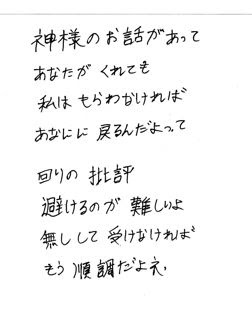 神様のお話があって
あなたが くれても
私は もらわなければ
あなにに 戻るんだよって
回りの 批評
避けるのが 難しいよ
無しして 受けなければ
もう 順調だよネ,